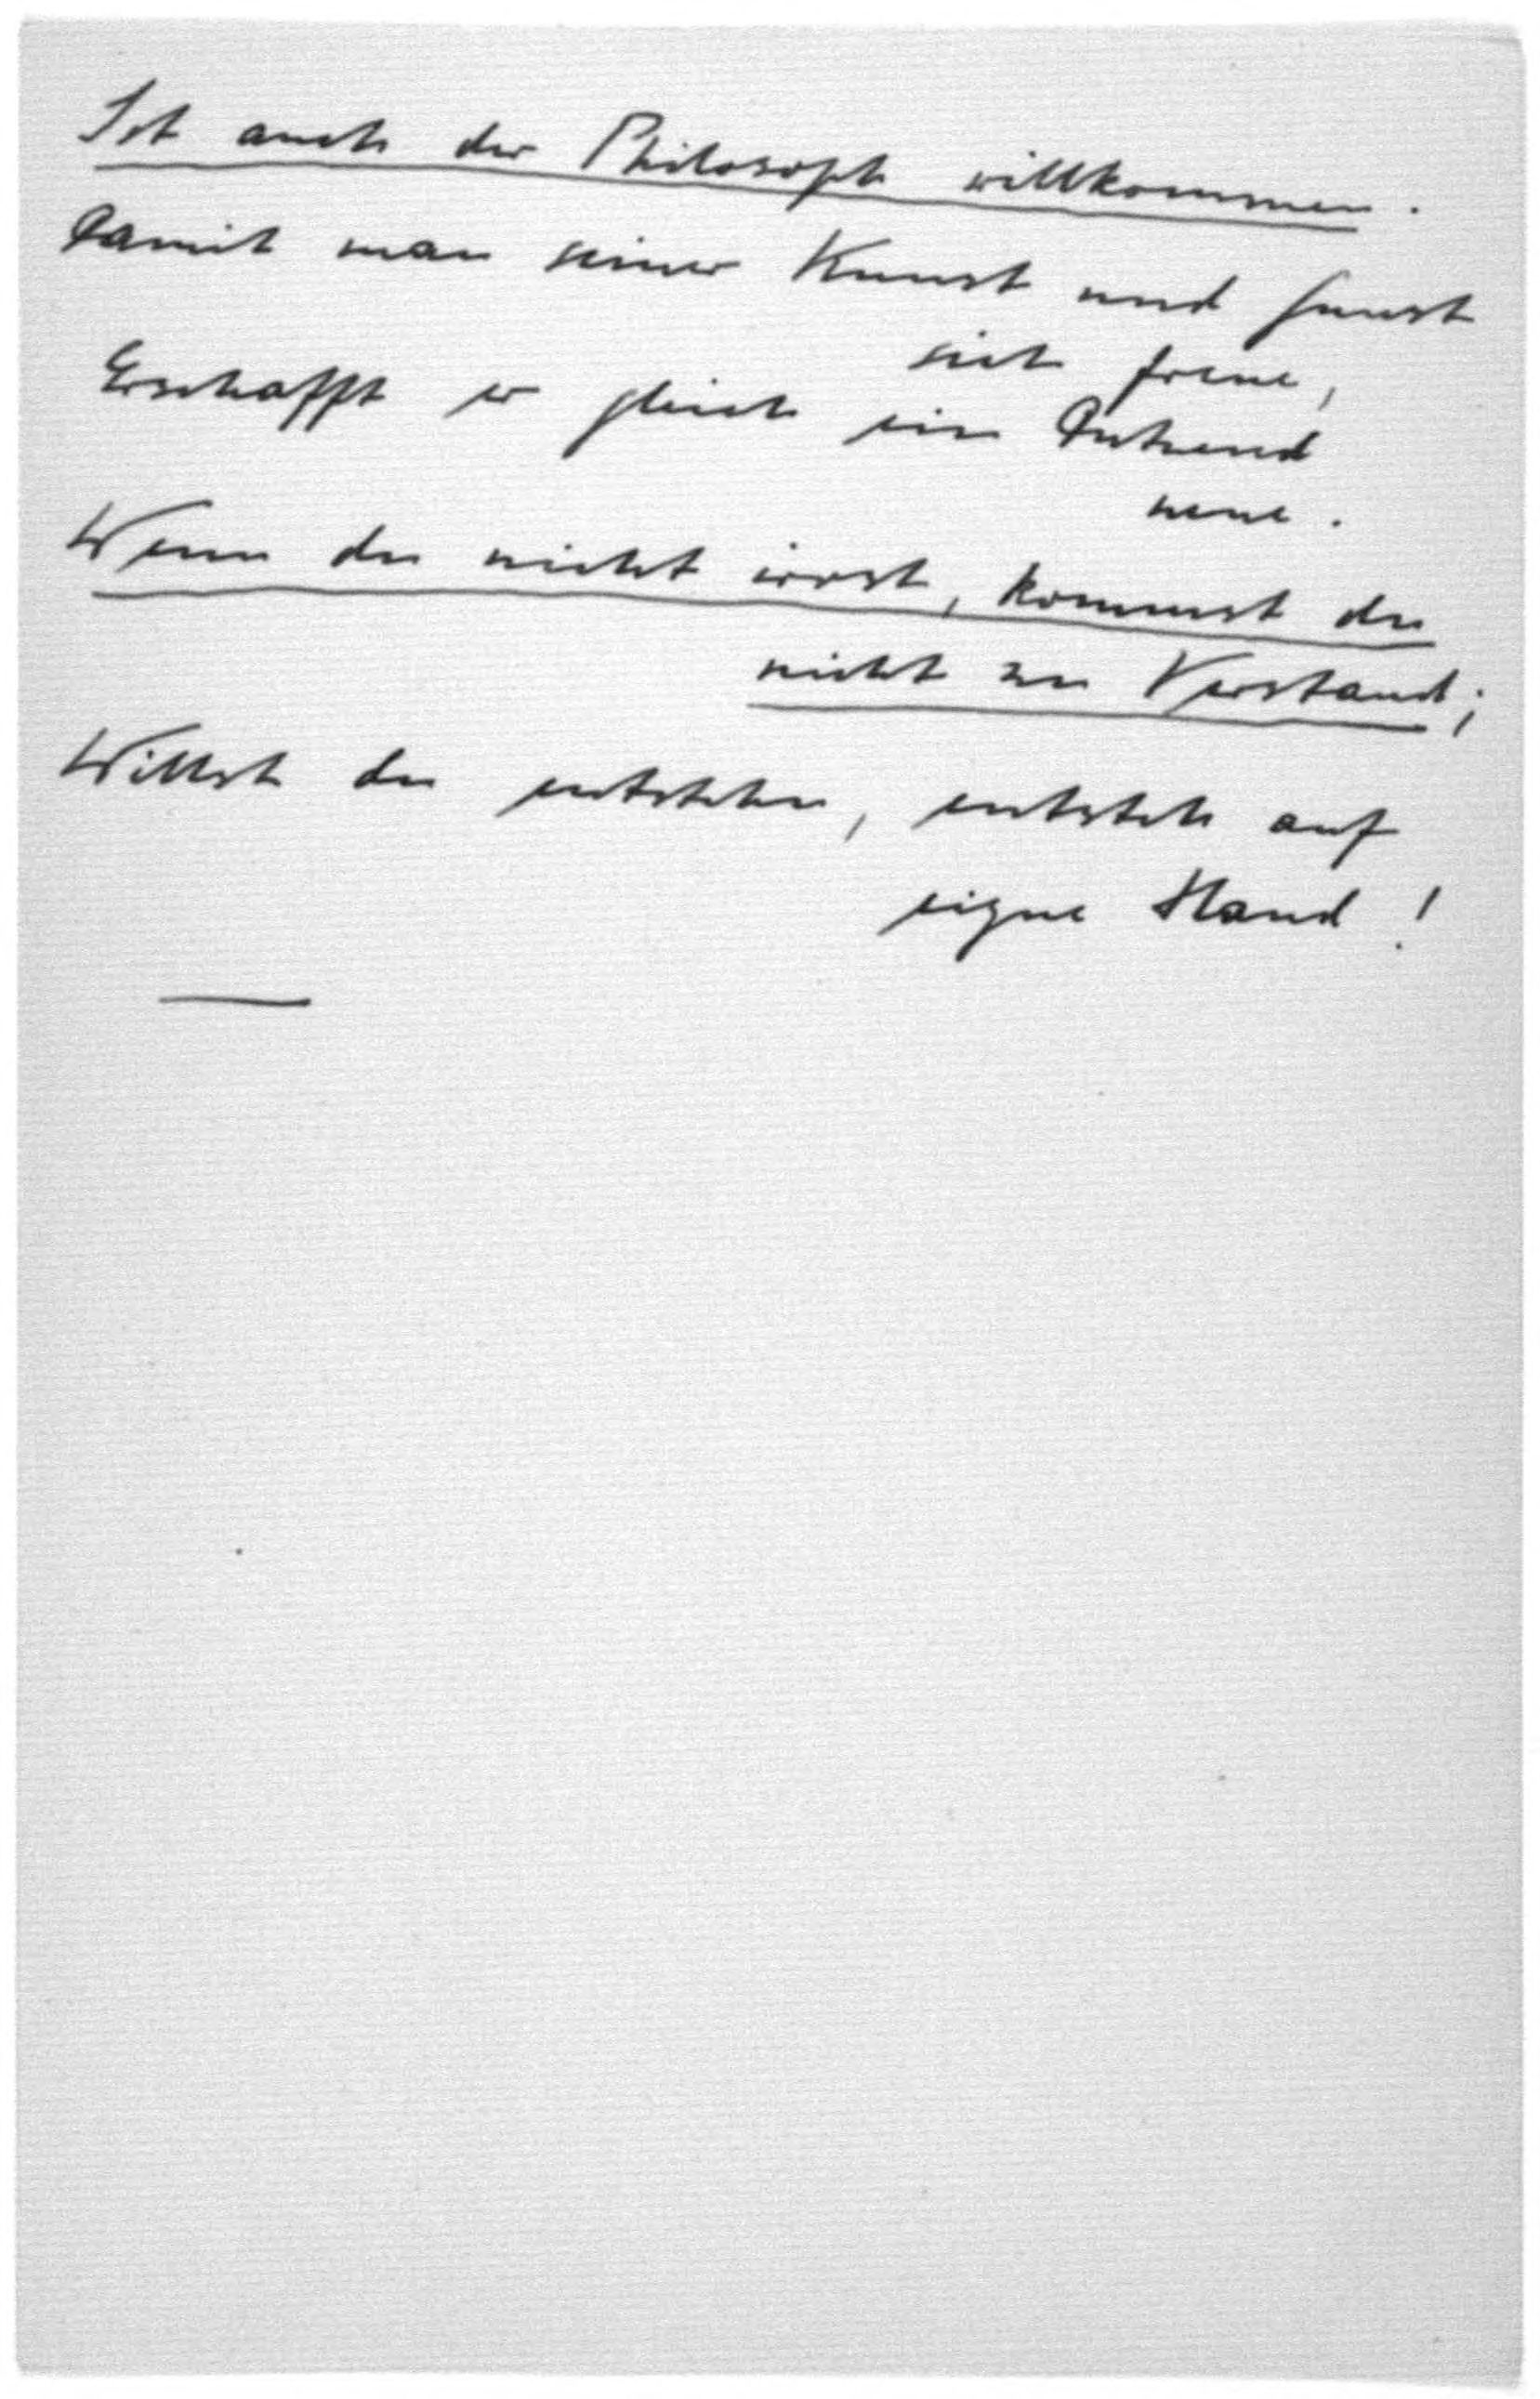 Ist auch der Philosoph willkommen.
Damit man seiner Kunst und Gunst
sich freue,
Erschafft er gleich ein Dutzend
neue.
Wenn du nicht irrst, kommst du
nicht zu Verstand;
Willst du entstehn, entsteh auf
eigne Hand!